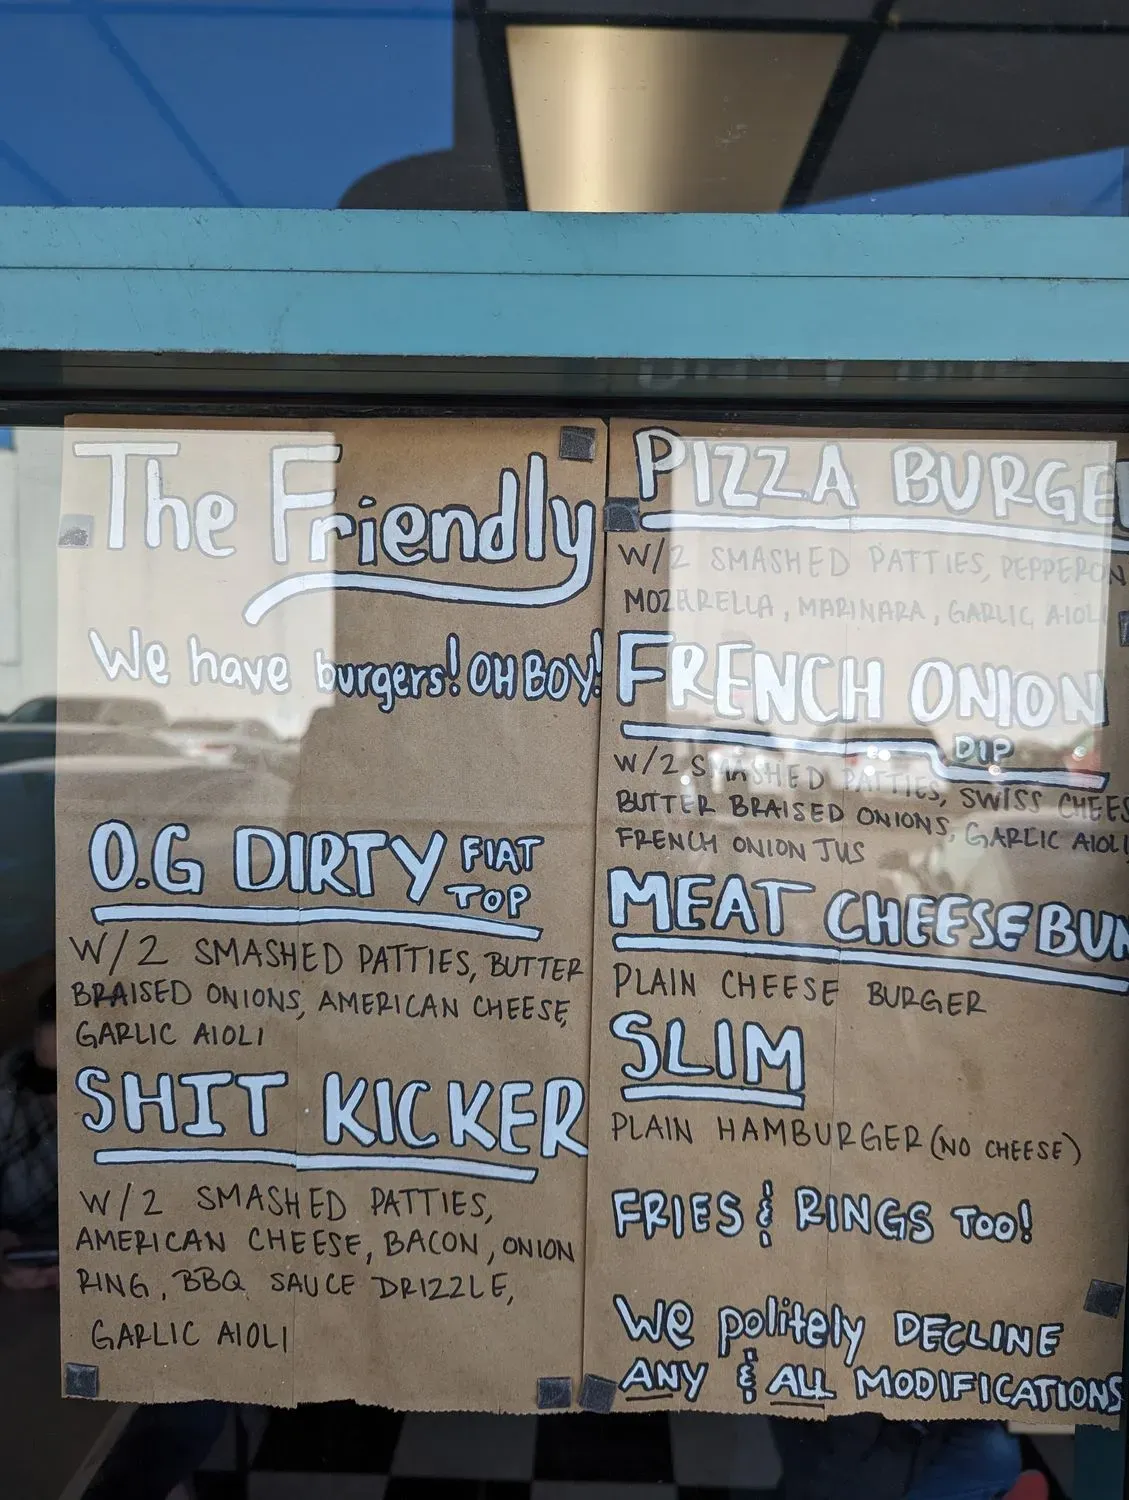 The Friendly
We have burgers! OH BOY!
O.G DIRTY FLAT
TOP
W/2 SMASHED PATTIES, BUTTER
BRAISED ONIONS, AMERICAN CHEESE,
GARLIC AIOLI
SHIT KICKER
W/2 SMASHED PATTIES,
AMERICAN CHEESE, BACON, ONION
RING, BBQ SAUCE DRIZZLE,
GARLIC AIOLI
PIZZA BURGE
W/2 SMASHED PATTIES, PEPPERON
MOZARELLA, MARINARA, GARLIC AIOLI
FRENCH ONION
DIP
W/2 SMASHED PATTIES, SWISS CHEES
BUTTER BRAISED ONIONS, GARLIC AIOLI
FRENCH ONION JUS
MEAT CHEESE BUN
PLAIN CHEESE BURGER
SLIM
PLAIN HAMBURGER (NO CHEESE)
FRIES & RINGS TOO!
We politely DECLINE
ANY & ALL MODIFICATIONS